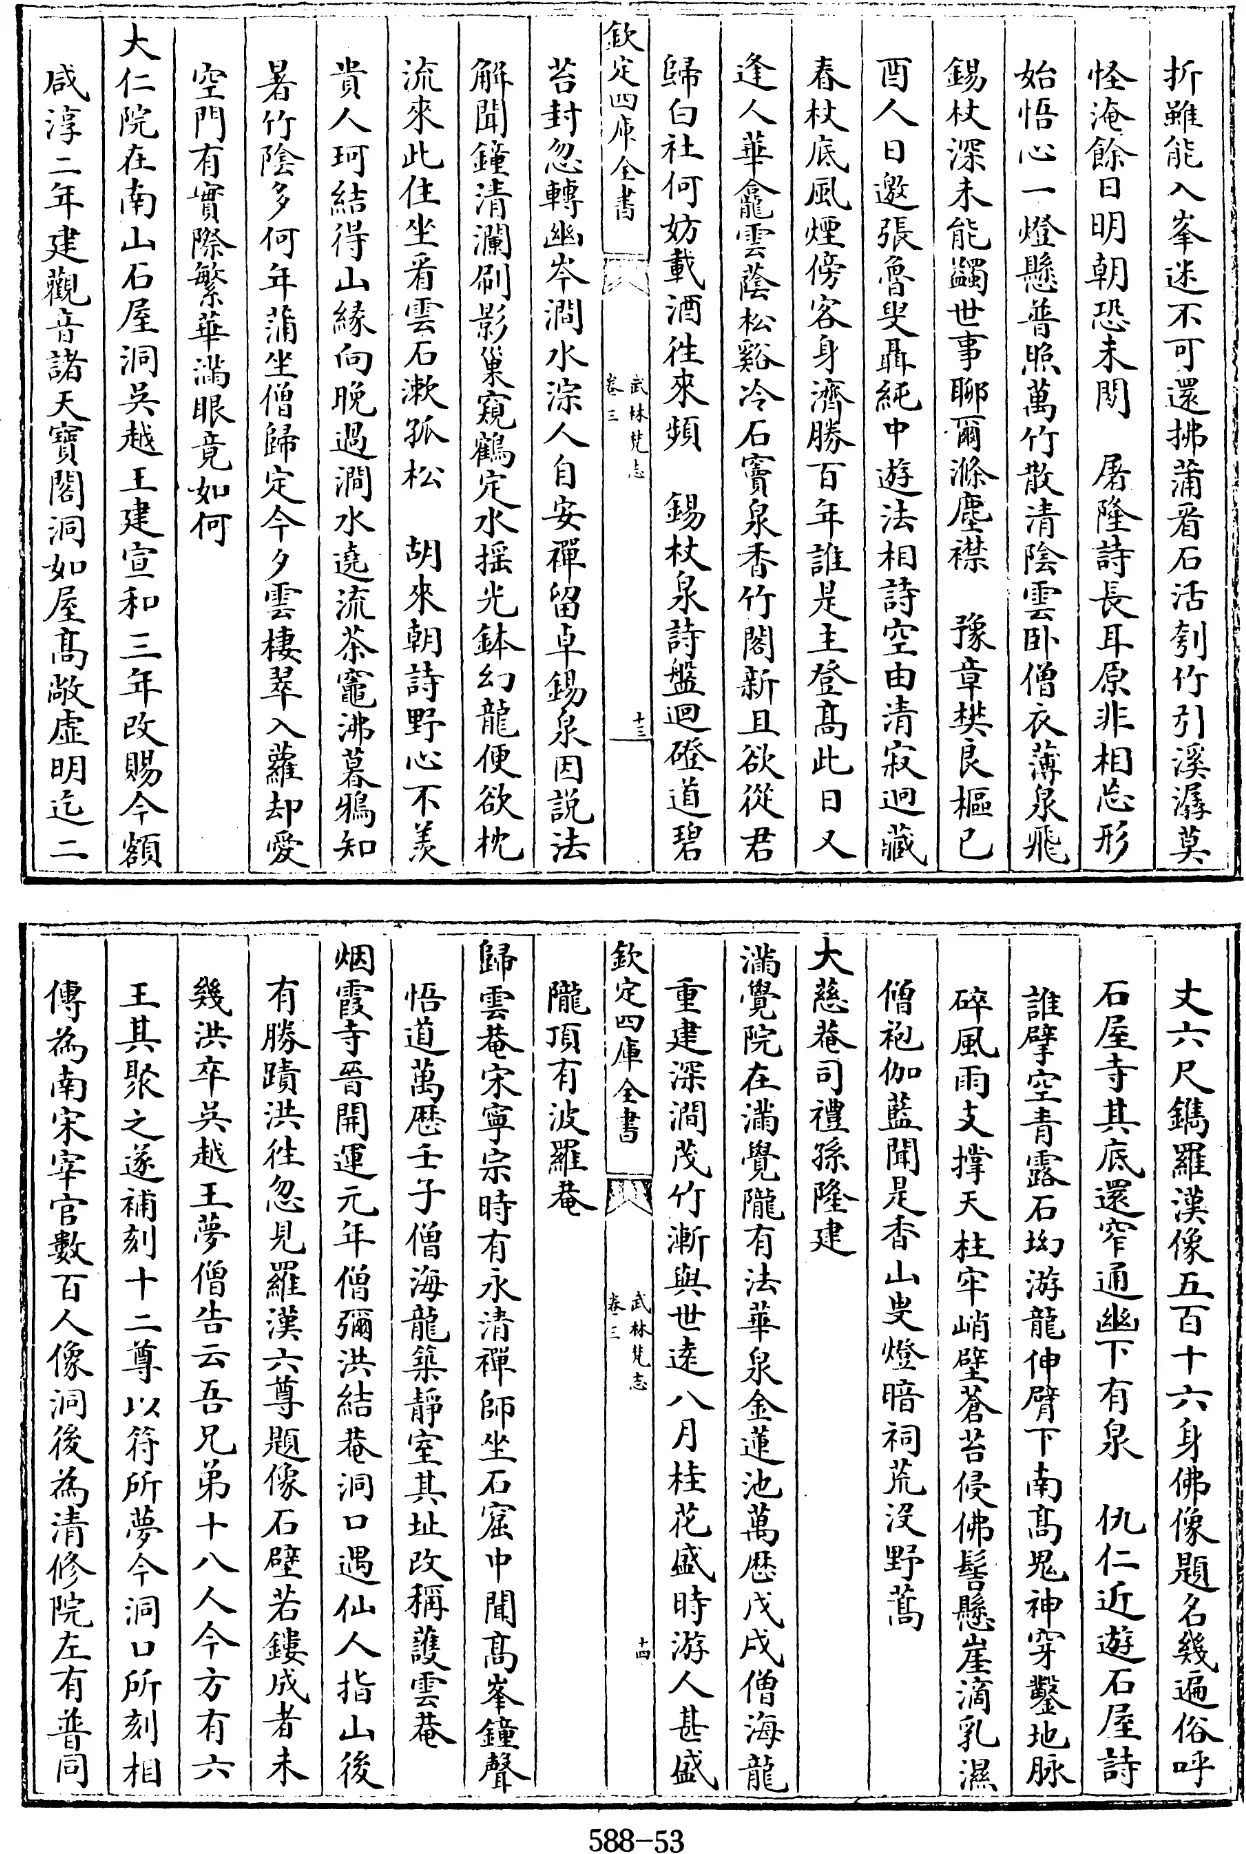 折雖能入峯迷不可還拂蒲看石活刳竹引溪潺莫
怪淹餘日明朝恐未閑　屠隆詩長耳原非相忘形
始悟心一燈懸普照萬竹散清陰雲卧僧衣薄泉飛
錫杖深未能蠲世事聊爾滌塵襟　豫章樊良樞己
酉人日邀張魯叟聶純中遊法相詩空由清寂迥藏
春杖底風煙傍客身濟勝百年誰是主登髙此日又
逢人華龕雲蔭松谿冷石竇泉香竹閣新且欲從君
歸白社何妨載酒徃來頻　錫杖泉詩盤迴磴道碧
欽定四庫全書
武林梵志
卷三
十三
苔封忽轉幽岑澗水淙人自安禪留卓錫泉因説法
解聞鐘清瀾刷影巢窺鶴定水揺光鉢幻龍便欲枕
流來此住坐看雲石漱孤松　胡來朝詩野心不羨
貴人珂結得山緣向晚過澗水遶流茶竈沸暮鴉知
暑竹陰多何年蒲坐僧歸定今夕雲棲翠入蘿却愛
空門有實際繁華滿眼竟如何
大仁院在南山石屋洞吳越王建宣和三年改賜今額
咸淳二年建觀音諸天寶閣洞如屋髙敞虚明迄二
丈六尺鐫羅漢像五百十六身佛像題名幾遍俗呼
石屋寺其底還窄通幽下有泉　仇仁近遊石屋詩
誰擘空青露石㘭游龍伸臂下南髙鬼神穿鑿地脉
碎風雨支撑天柱牢峭壁蒼苔侵佛髻懸崖滴乳濕
僧袍伽藍聞是香山叟燈暗祠荒没野蒿
大慈菴司禮孫隆建
滿覺院在滿覺隴有法華泉金蓮池萬歴戊戌僧海龍
重建深澗茂竹漸與世逺八月桂花盛時游人甚盛
欽定四庫全書
武林梵志
卷三
十四
隴頂有波羅菴
歸雲菴宋寧宗時有永清禪師坐石窟中聞髙峯鐘聲
悟道萬歴壬子僧海龍築靜室其址改稱䕶雲菴
烟霞寺晉開運元年僧彌洪結菴洞口遇仙人指山後
有勝蹟洪徃忽見羅漢六尊題像石壁若鏤成者未
幾洪卒吳越王夢僧告云吾兄弟十八人今方有六
王其聚之遂補刻十二尊以符所夢今洞口所刻相
傳為南宋宰官數百人像洞後為清修院左有普同
588-53